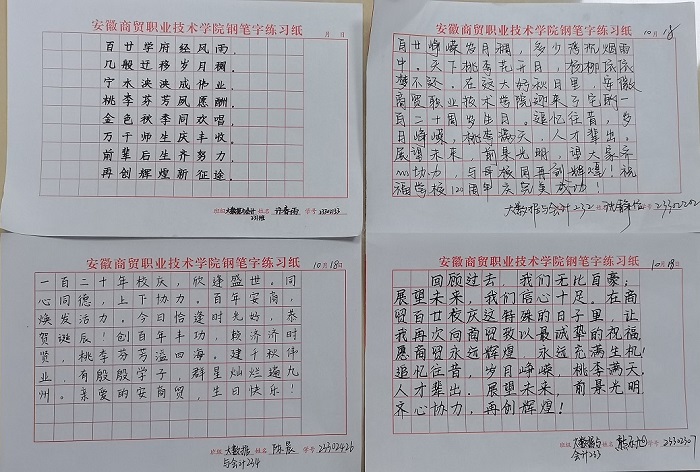 安徽商贸职业技术学院钢笔字练习纸
月 日
百廿学府经风雨，
几般迁移岁月稠，
宁水泱泱成伟业，
桃李芬芳夙愿酬，
金色秋季同欢唱，
万千师生庆丰收，
前辈后生齐努力，
再创辉煌新征途。
班级 大数据与会计 姓名 学号
231班
安徽商贸职业技术学院钢笔字练习纸
10月18
百廿峥嵘岁月稠，多少楼台烟雨
中。天下桃李花开日，杨柳依依
梦不还。在这大好秋日里，安徽
商贸职业技术学院迎来了它的一
百二十周岁生日。追忆往昔，岁
月峥嵘，桃李满天，人才辈出，
展望未来，前景光明，望大家齐
心协力，与母校同再创辉煌！祝
福学校120周年庆完美成功！
大数据与会计232 姓名 23302202
安徽商贸职业技术学院钢笔字练习纸
10月18日
一百二十年校庆，欣逢盛世。同
心同德，上下协力。百年安商，
焕发活力。今日恰逢时光好，恭
贺诞辰！创百年丰功，赖济济时
贤，桃李芬芳溢四海。建千秋伟
业，有殷殷学子，群星灿烂遍九
州。亲爱的安商贸，生日快乐！
班级 大数据 姓名 陈晨 学号 23302426
与会计234
安徽商贸职业技术学院钢笔字练习纸
10月18日
回顾过去，我们无比自豪；
展望未来，我们信心十足。在商
贸百廿校庆这特殊的日子里，让
我再次向商贸致以最诚挚的祝福，
愿商贸永远辉煌，永远充满生机！
追忆往昔，岁月峥嵘，桃李满天，
人才辈出。展望未来，前景光明，
齐心协力，再创辉煌！
班级 大数据与 姓名 学号 2330230
会计233